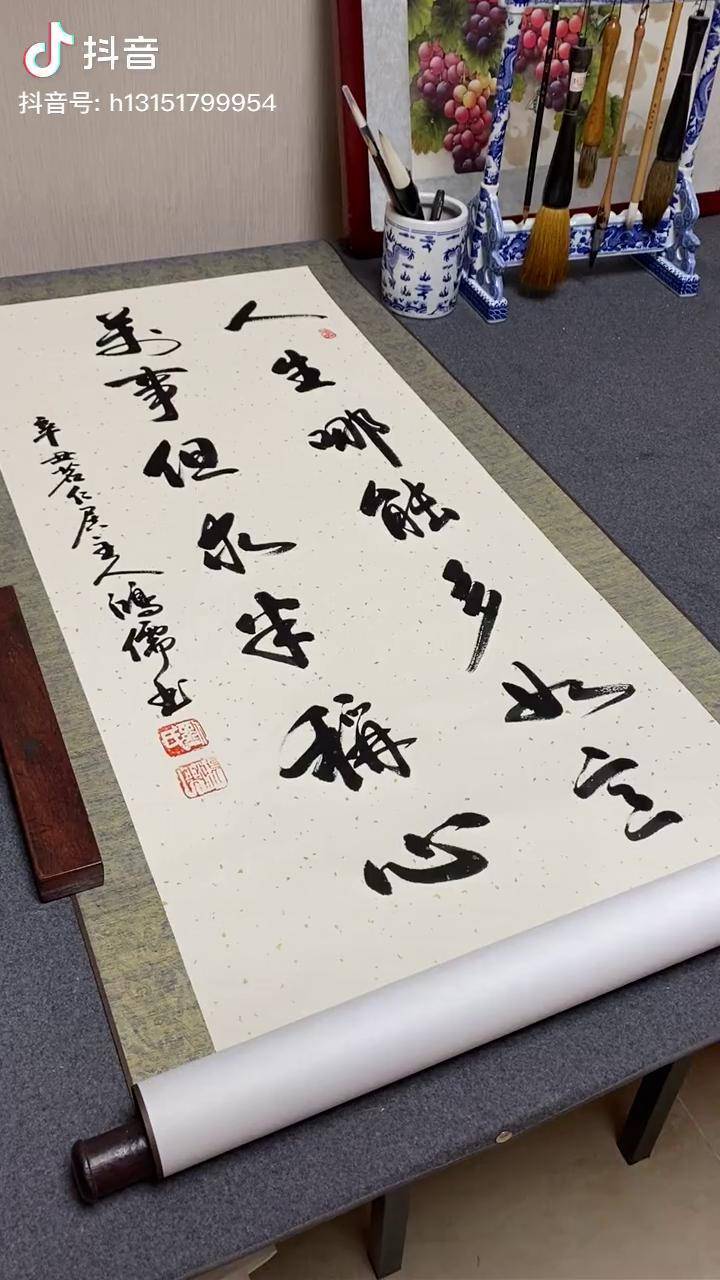 抖音
抖音号: h13151799954
人生哪能多如意
萬事但求半稱心
辛丑茗仁居主人鴻儒書